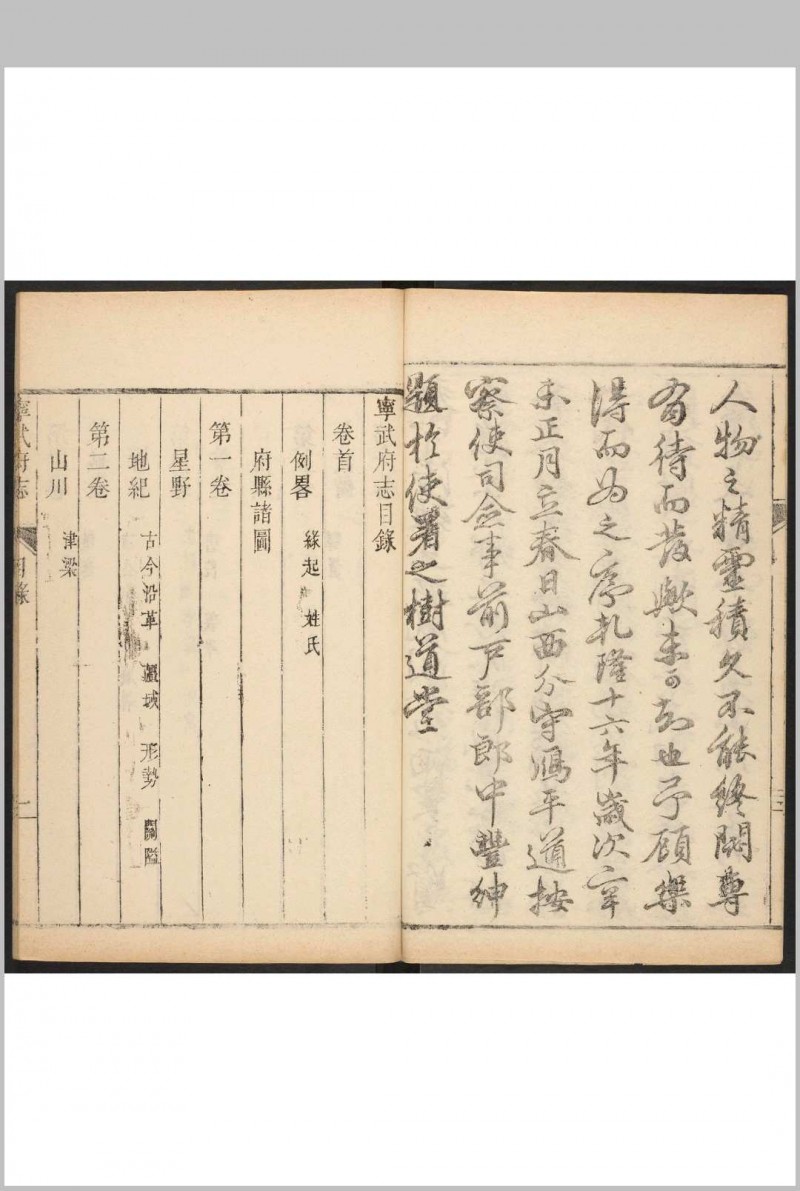 人物之精靈積久不能終閟尊
有待而發歟未可知也予顧樂
得而為之序乾隆十六年歲次辛
未正月立春日山西分守鴈平道按
察使司僉事前戶部郎中豐紳
題於使署之樹道堂
寧武府志目錄
卷首
例畧 緣起 姓氏
府縣諸圖
第一卷
星野
地紀 古今沿革 疆域 形勢 關隘
第二卷
山川 津梁
寧武府志 目錄 一